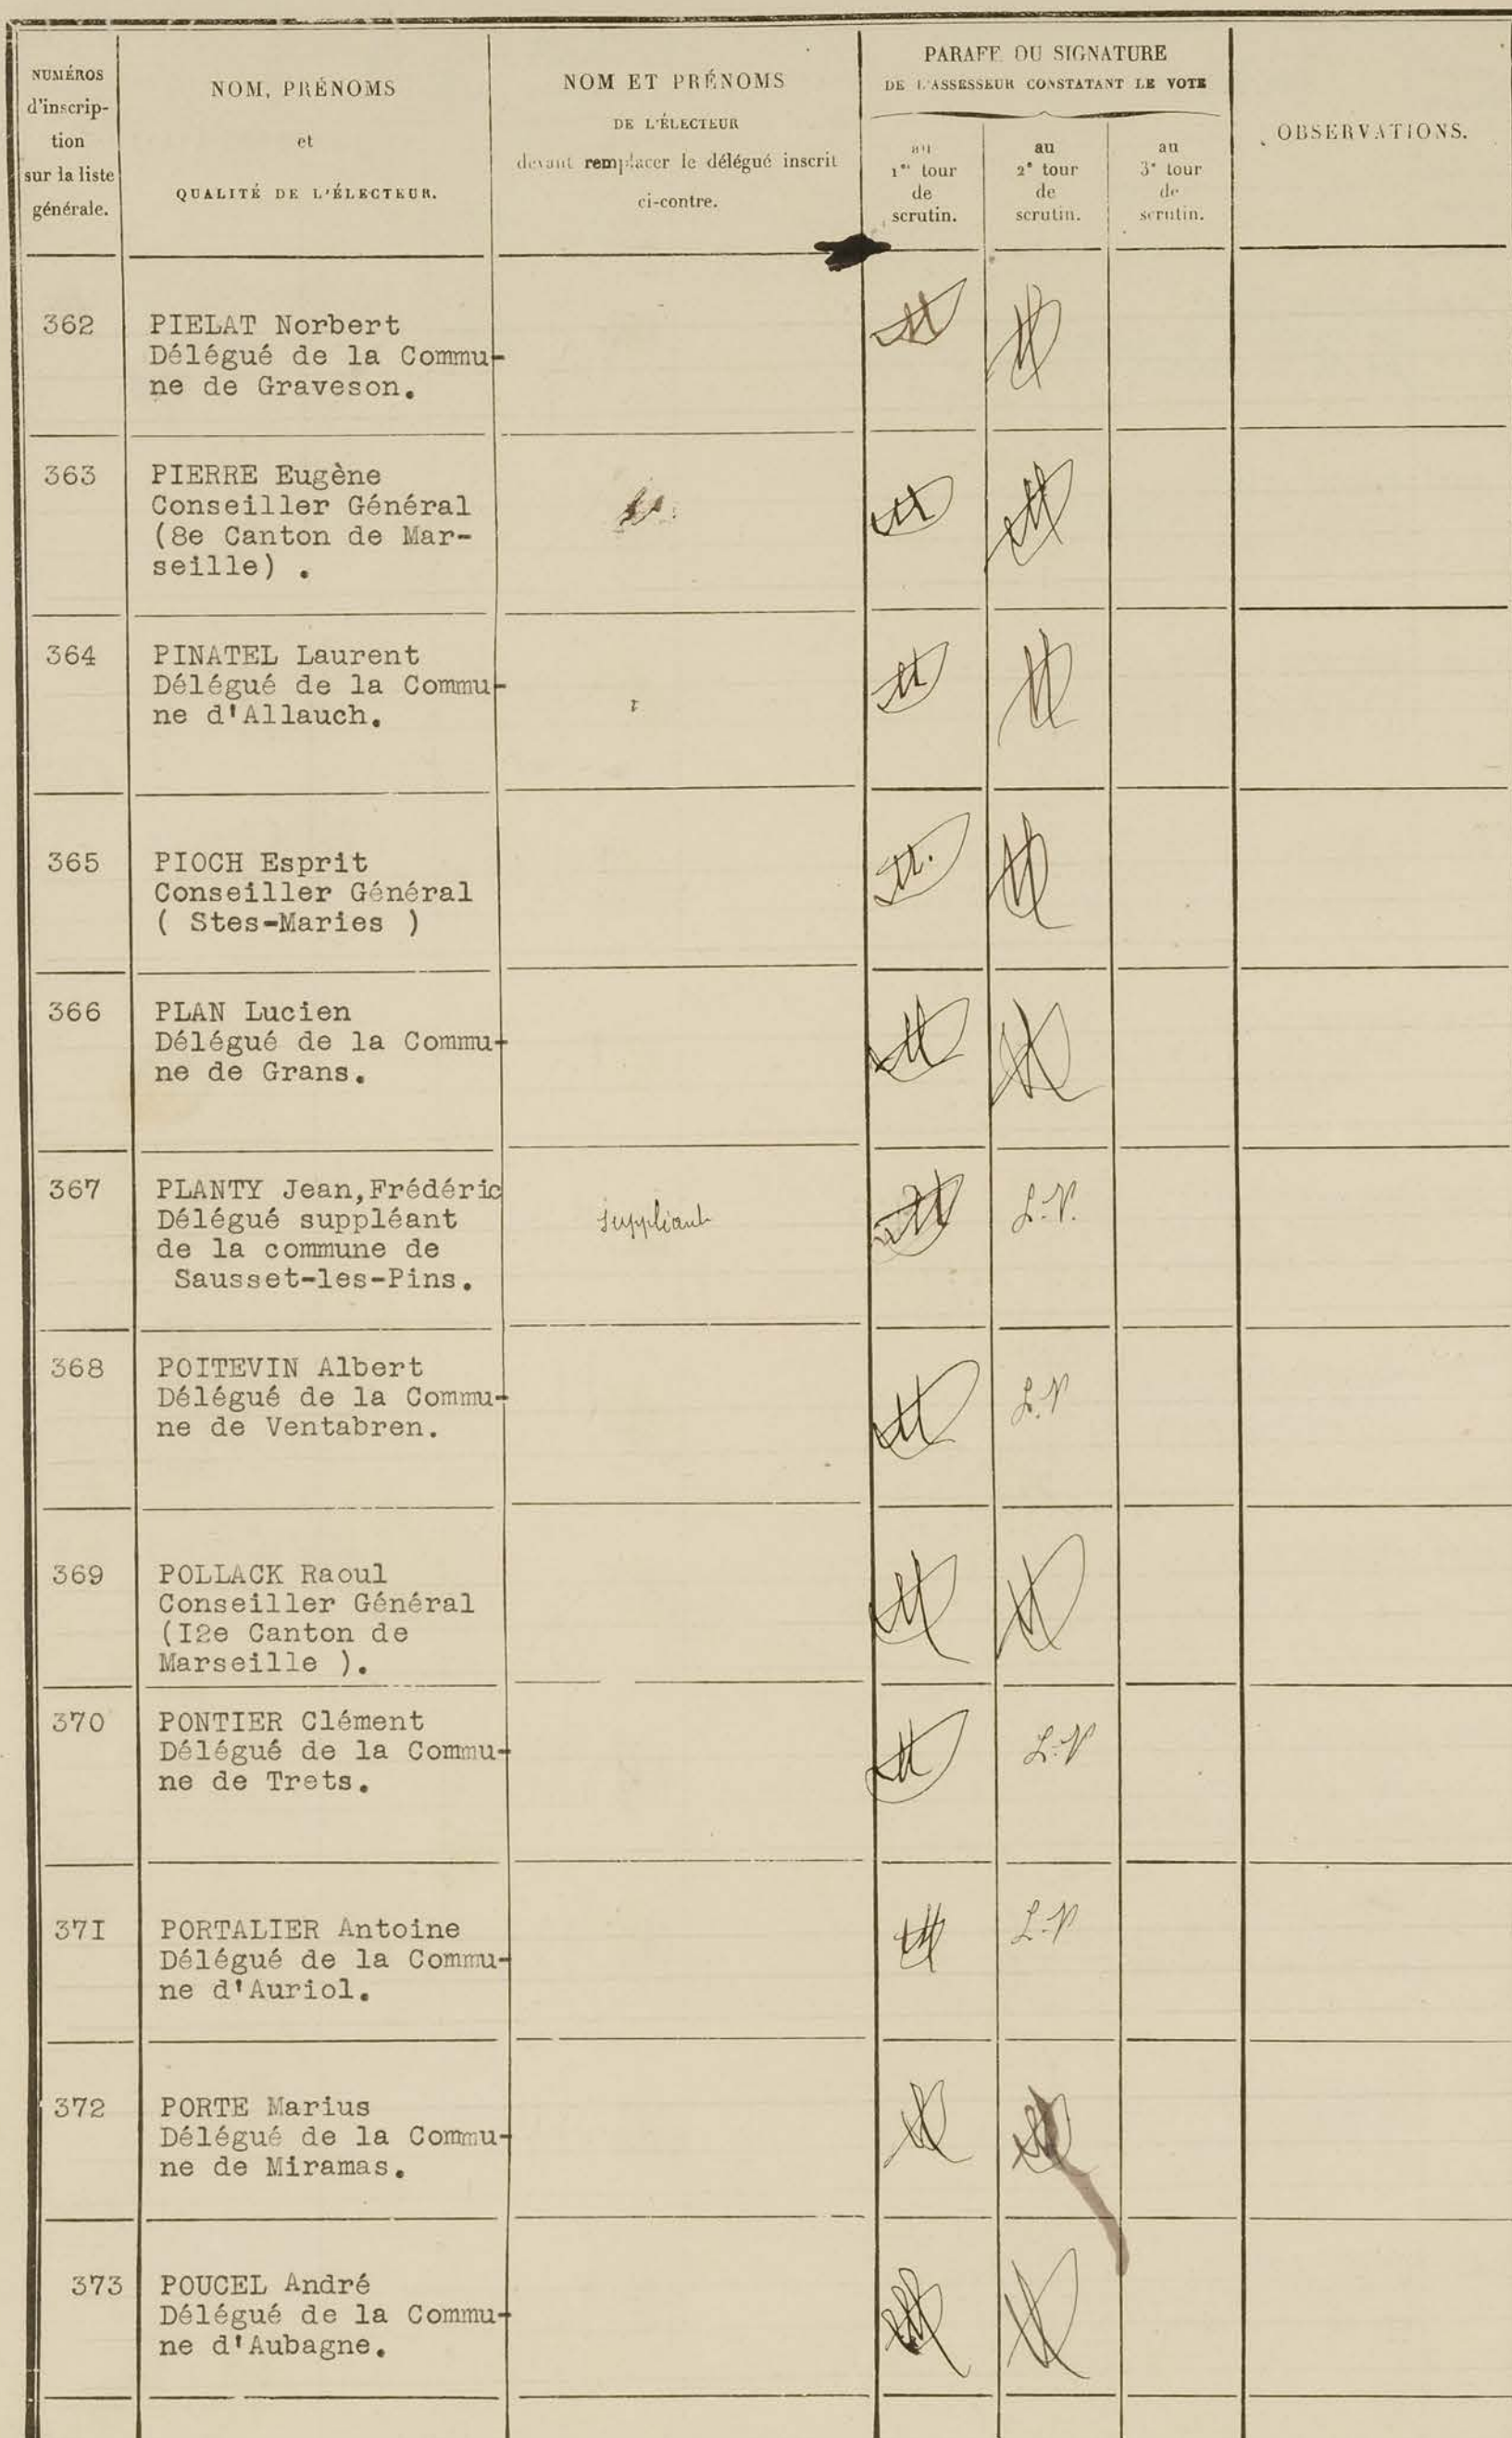 NUMÉROS
d'inscrip-
tion
sur la liste
générale.
NOM, PRÉNOMS
et
QUALITÉ DE L'ÉLECTEUR.
NOM ET PRÉNOMS
DE L'ÉLECTEUR
devant remplacer le délégué inscrit
ci-contre.
PARAFE OU SIGNATURE
DE L'ASSESSEUR CONSTATANT LE VOTE
au
1er tour
de
scrutin.
au
2e tour
de
scrutin.
au
3e tour
de
scrutin.
OBSERVATIONS.
362
PIELAT Norbert
Délégué de la Commu-
ne de Graveson.
363
PIERRE Eugène
Conseiller Général
(8e Canton de Mar-
seille) .
364
PINATEL Laurent
Délégué de la Commu-
ne d'Allauch.
365
PIOCH Esprit
Conseiller Général
( Stes-Maries )
366
PLAN Lucien
Délégué de la Commu-
ne de Grans.
367
PLANTY Jean,Frédéric
Délégué suppléant
de la commune de
Sausset-les-Pins.
suppléant
L.N.
368
POITEVIN Albert
Délégué de la Commu-
ne de Ventabren.
L.N
369
POLLACK Raoul
Conseiller Général
(I2e Canton de
Marseille ).
370
PONTIER Clément
Délégué de la Commu-
ne de Trets.
L.N
37I
PORTALIER Antoine
Délégué de la Commu-
ne d'Auriol.
L.N
372
PORTE Marius
Délégué de la Commu-
ne de Miramas.
373
POUCEL André
Délégué de la Commu-
ne d'Aubagne.